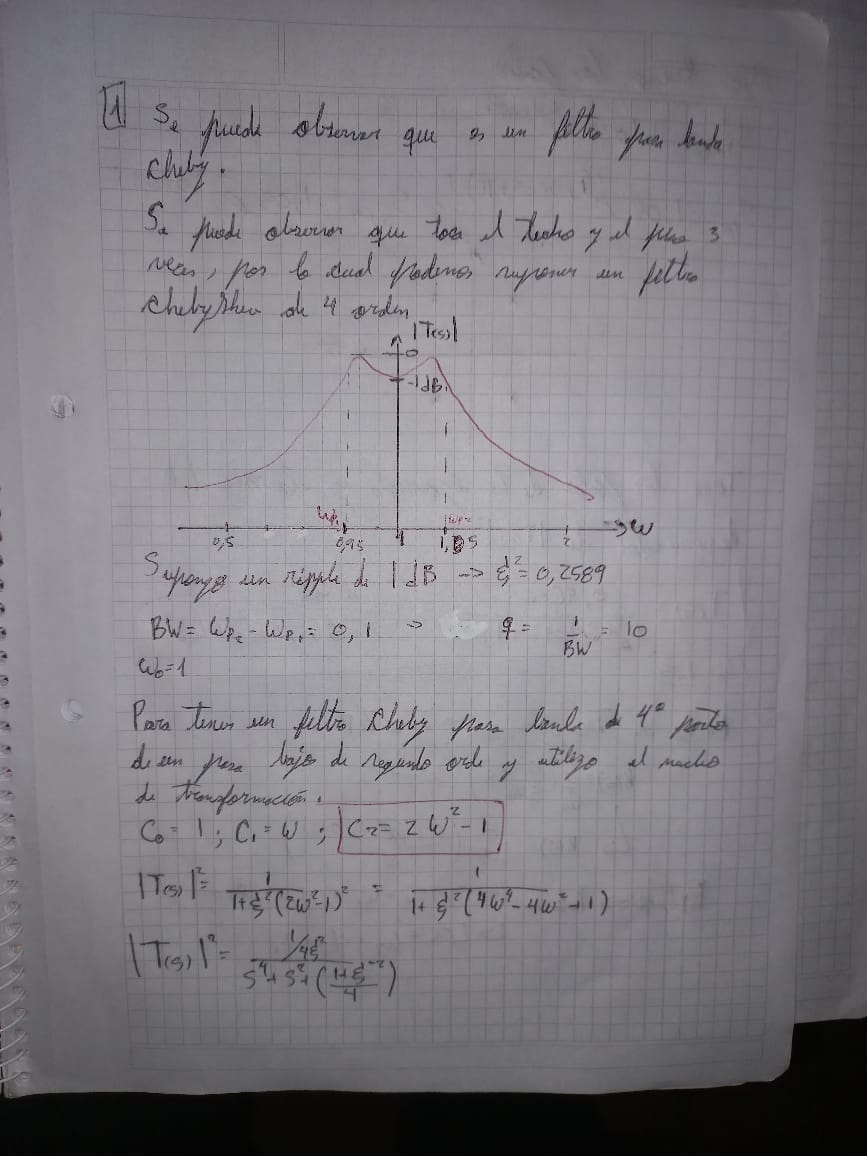 1 Se puede observar que es un filtro pasa banda
Cheby.
Se puede observar que toca el techo y el piso 3
veces, por lo cual podemos suponer un filtro
Chebyshev de 4 orden
|T(s)|
0
-1dB
ωp1 ωp2
0,5 0,95 1 1,05 2 ω
Supongo un ripple de 1dB -> ξ² = 0,2589
BW = ωp2 - ωp1 = 0,1 -> q = 1/BW = 10
ω0=1
Para tener un filtro Cheby pasa banda de 4º parto
de un pasa bajo de segundo orde y utilizo el nucleo
de transformación.
C0 = 1 ; C1 = ω ; C2 = 2ω² - 1
|T(s)|² = 1/(1+ξ²(2ω²-1)²) = 1/(1+ξ²(4ω⁴-4ω²+1))
|T(s)|² = (1/4ξ²)/(s⁴+s²+((1+ξ⁻²)/4))